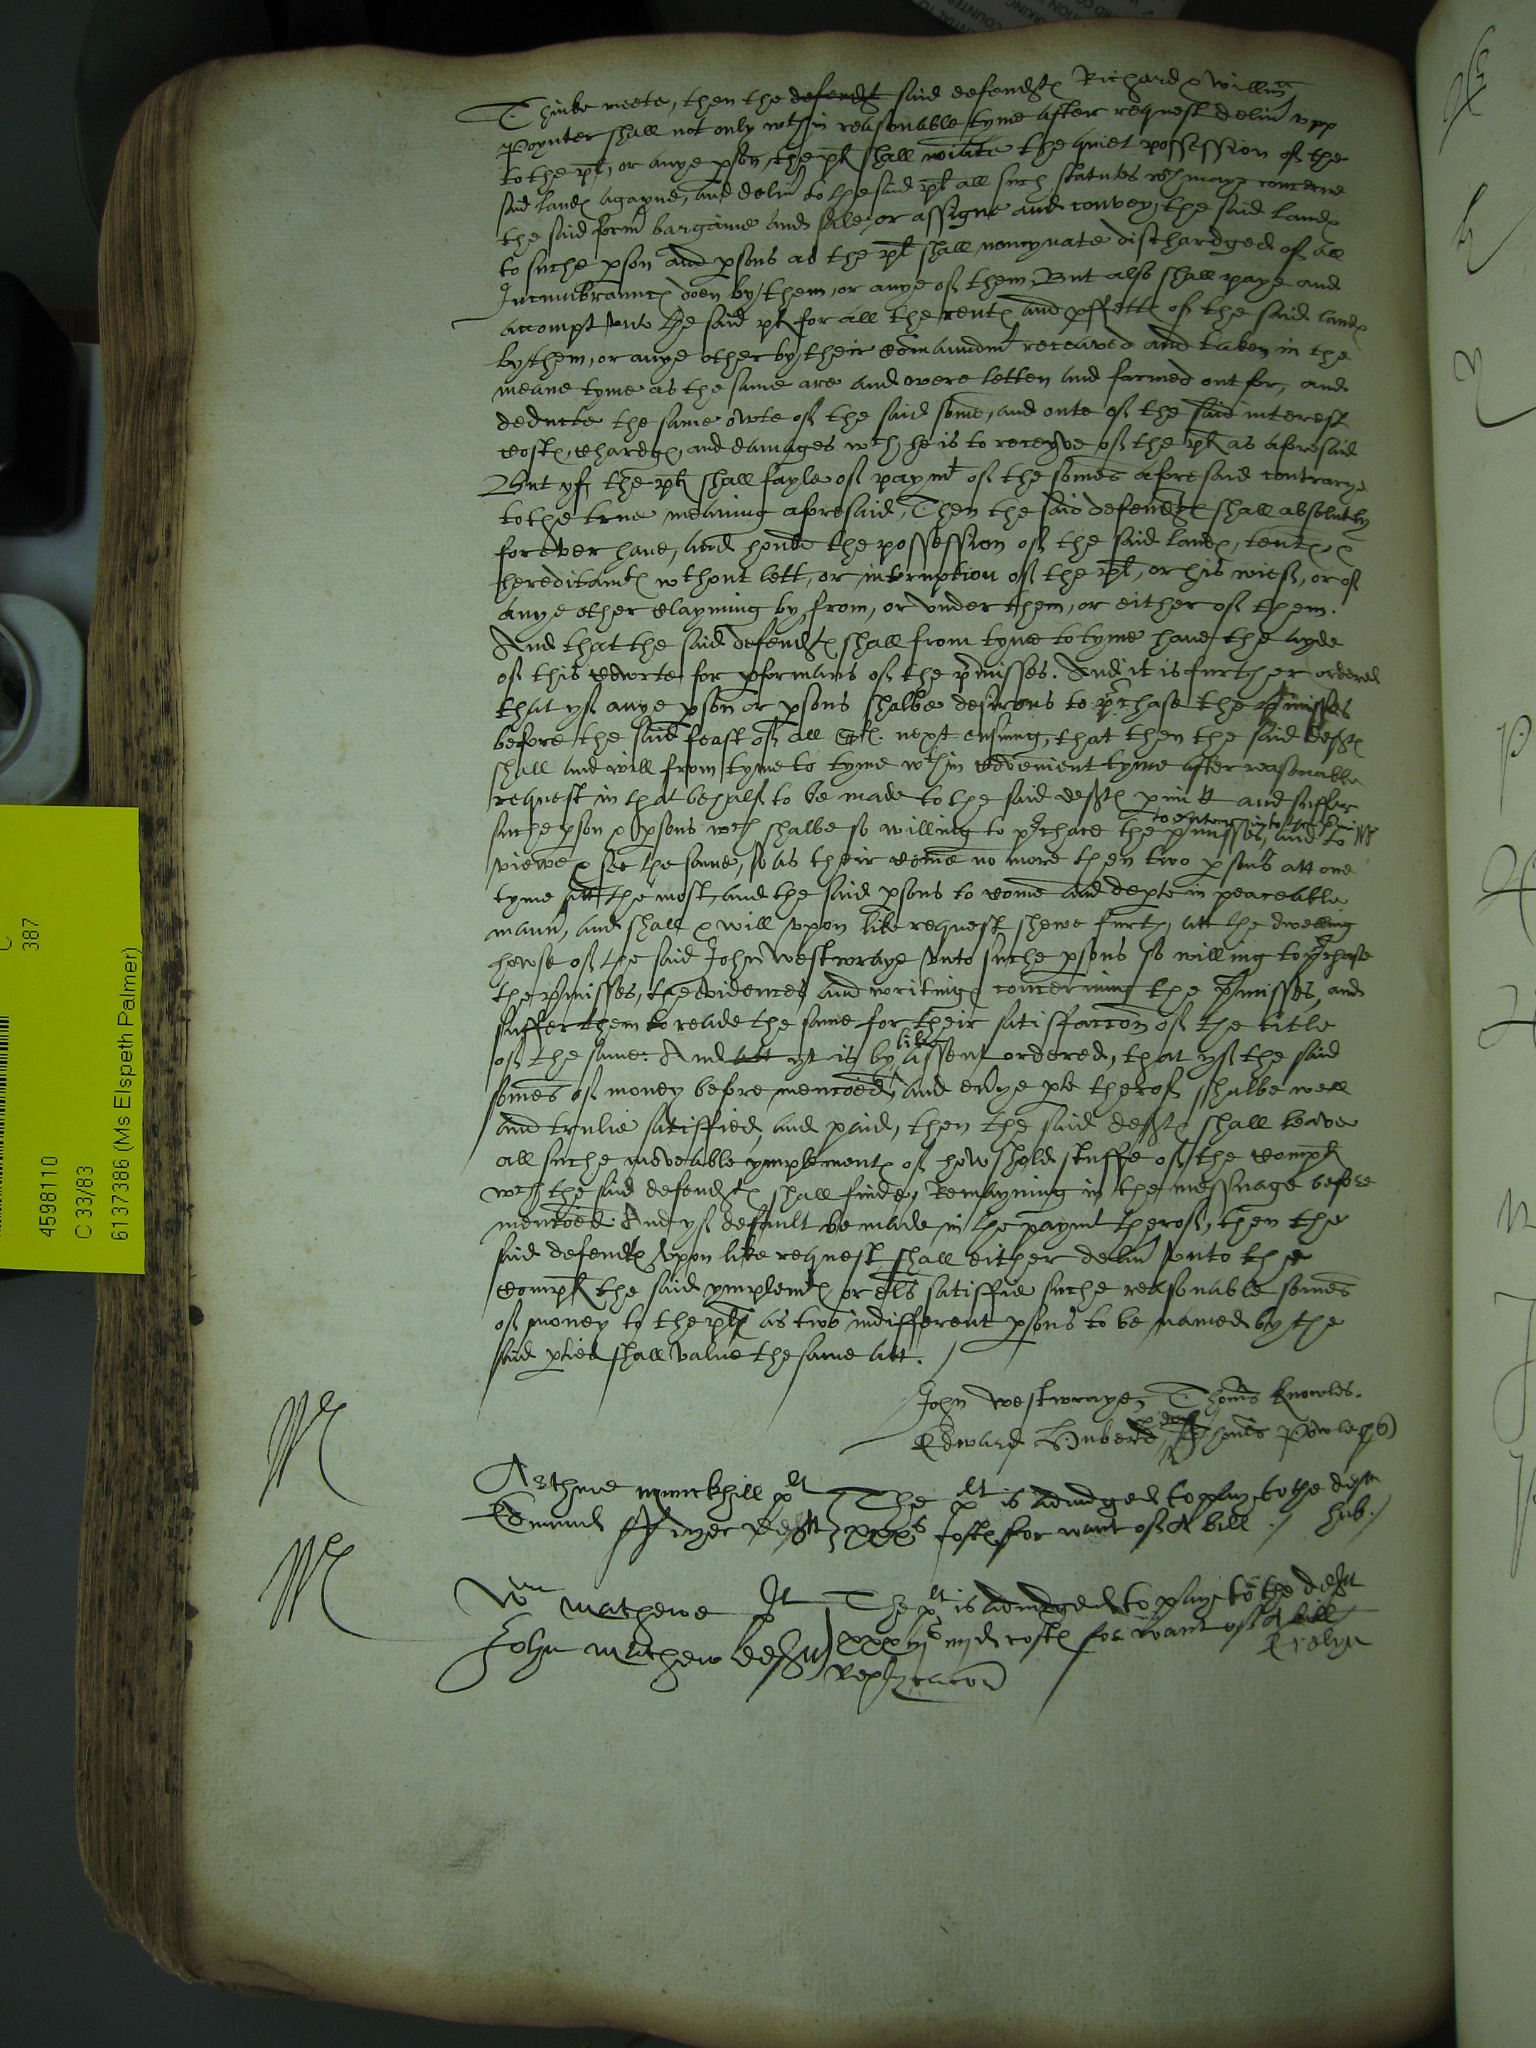 Thinke meete, then the defendt said defendtes Richard & Willm
Poynter shall not only wthin reasonable tyme after request deliu vpp
to the plt, or anye pson the plt shall noiate the quiet possession of the
said landes agayne, and deliu to the said plt all such statutes wch maye concerne
the said form bargaine and sale, or assigne and convey the said landes
to suche pson and psons as the plt shall nomynate dischardged of all
Incumbraunces doen by them, or anye of them, But also shall paye and
accompt vnto the said plt for all the rentes and pffettes of the said landes
by them, or anye other by their comaundmt receaved and taken in the
meane tyme as the same are and were letten and farmed out for, and
deducte the same owte of the said some, and oute of the said interest
costes, chardges, and damages wch he is to receyve of the plt as aforesaid
But yf the plt shall fayle of paymt of the somes aforesaid contrarye
to the true meaning aforesaid, Then the said defendtes shall absolutly
for ever haue, and the possession of the said landes, tentes &
hereditamtes wthout lett, or interuption of the plt, or his wief, or of
anye other clayming by, from, or vnder them, or either of them.
And that the said defendtes shall from tyme to tyme haue the ayde
of this Courte for pformans of the pmisses. And it is further ordered
that yf anye pson or psons shalbe desirous to pchase the pmisses
before the said feast of all Stes next ensuing, that then the said deftes
shall and will from tyme to tyme wthin convenient tyme after reasonable
request in that behalf to be made to the said deftes pmitt and suffer
suche pson & psons wch shalbe so willing to pchace the pmisses, and to
to enter into the pmisses
viewe & see the same, so as their come no more then two psons att one
tyme att the most, and the said psons to come and depte in peaceable
mann, and shall & will vpon like request shewe furth att the dwelling
howse of the said John Westwraye vnto suche psons so willing to pchase
the pmisses, the evidences and writinges concerning the pmisses, and
suffer them to reade the same for their satisfaccon of the title
of the same. And att yt is by like assent ordered, that yf the said
somes of money before mencoed, and euye pte therof shalbe well
and trulie satisfied, and paid, then the said deftes shall leave
all suche moveable ymplementes of howshold stuffe of the complt
wch the said defendtes shall finde, Remayning in the messuage before
mencoed. And yf default be made in the paymt therof, then the
said defendtes vpon like request shall either deliu vnto the
complt the said ymplemtes or els satisfie suche reasonable somes
of money to the plt as two indifferent psons to be named by the
said pties shall value the same att.
John Westwraye, Thoms Knowles.
Edward Huberd, Thoms Powle
Arthure plt
Edmund deft
The plt is adiudged to pay to the deft
xxxs costes for want of A bill. hub.
Wm Mathewe plt
John Mathew deft
The plt is adiudged to pay to the deft
iiijd costes for want of A bill
Replicacon
4598110
C 33/83
6137386 (Ms Elspeth Palmer)
C
387